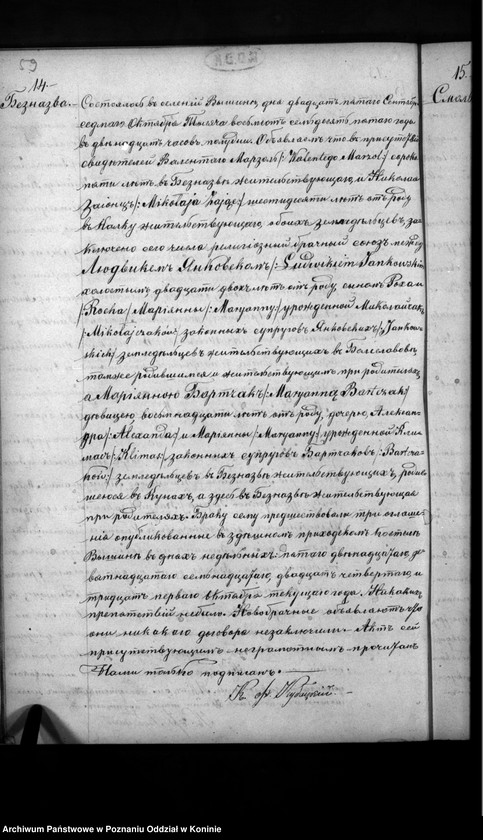 59
14.
15.
Безназва.
Смоль
Состоялось въ селеніи Вышинѣ, дня двадцать пятаго Сентября
седмаго Октября Тысяча восемьсотъ семьдесятъ пятаго года
въ двѣнадцать часовъ полудни. Объявляемъ что въ присутствіи
свидѣтелей Валентаго Марзолъ /: Walentego Marzol :/ сорока
пяти лѣтъ въ Безназвѣ жительствующаго, и Николая
Заіонцъ /: Mikołaja Zając :/ шестидесяти лѣтъ отъ роду
въ жительствующаго, обоихъ земледѣльцевъ, за-
ключено сего числа религіозный брачный союзъ между
Людвикемъ Янковскимъ /: Ludwikiem Jankowskim
холостымъ двадцати двухъ лѣтъ отъ роду сыномъ Роха
/: Rocha :/ Маріянны /: Maryanny :/ урожденной Миколайчакъ
/: Mikołajczaków :/ законныхъ супруговъ Янковскихъ /: Jankow-
skich :/ земледѣльцевъ жительствующихъ въ Болеславовѣ,
тамже родившимся и жительствующимъ при родителяхъ,
а Маріянною Бартчакъ /: Maryanną Bartczak :/
дѣвицею восемьнадцати лѣтъ отъ роду, дочерю Алексан-
дра /: Alexandra :/ и Маріянны /: Maryanny :/ урожденной Кли-
макъ /: Klimak :/ законныхъ супруговъ Бартчаковъ /: Bartcza-
ków :/ земледѣльцевъ въ Безназвѣ жительствующихъ, родив-
шеюся въ Кунахъ, а здѣсь въ Безназвѣ жительствующая
при родителяхъ. Браку сему предшествовали три оглаше-
нія опубликованные въ здѣшнемъ приходскомъ костелѣ
Вышинѣ въ дняхъ недѣльныхъ: пятаго двѣнадцатаго, де-
вятнадцатаго семьнадцатаго, двадцать четвертаго, и
тридцать перваго Октября текущаго года. Никакихъ
препятствій небыло. Новобрачные объявляютъ что
они никакаго договора незаключили. Актъ сей
присутствующимъ неграмотнымъ прочитанъ
Нами только подписанъ.